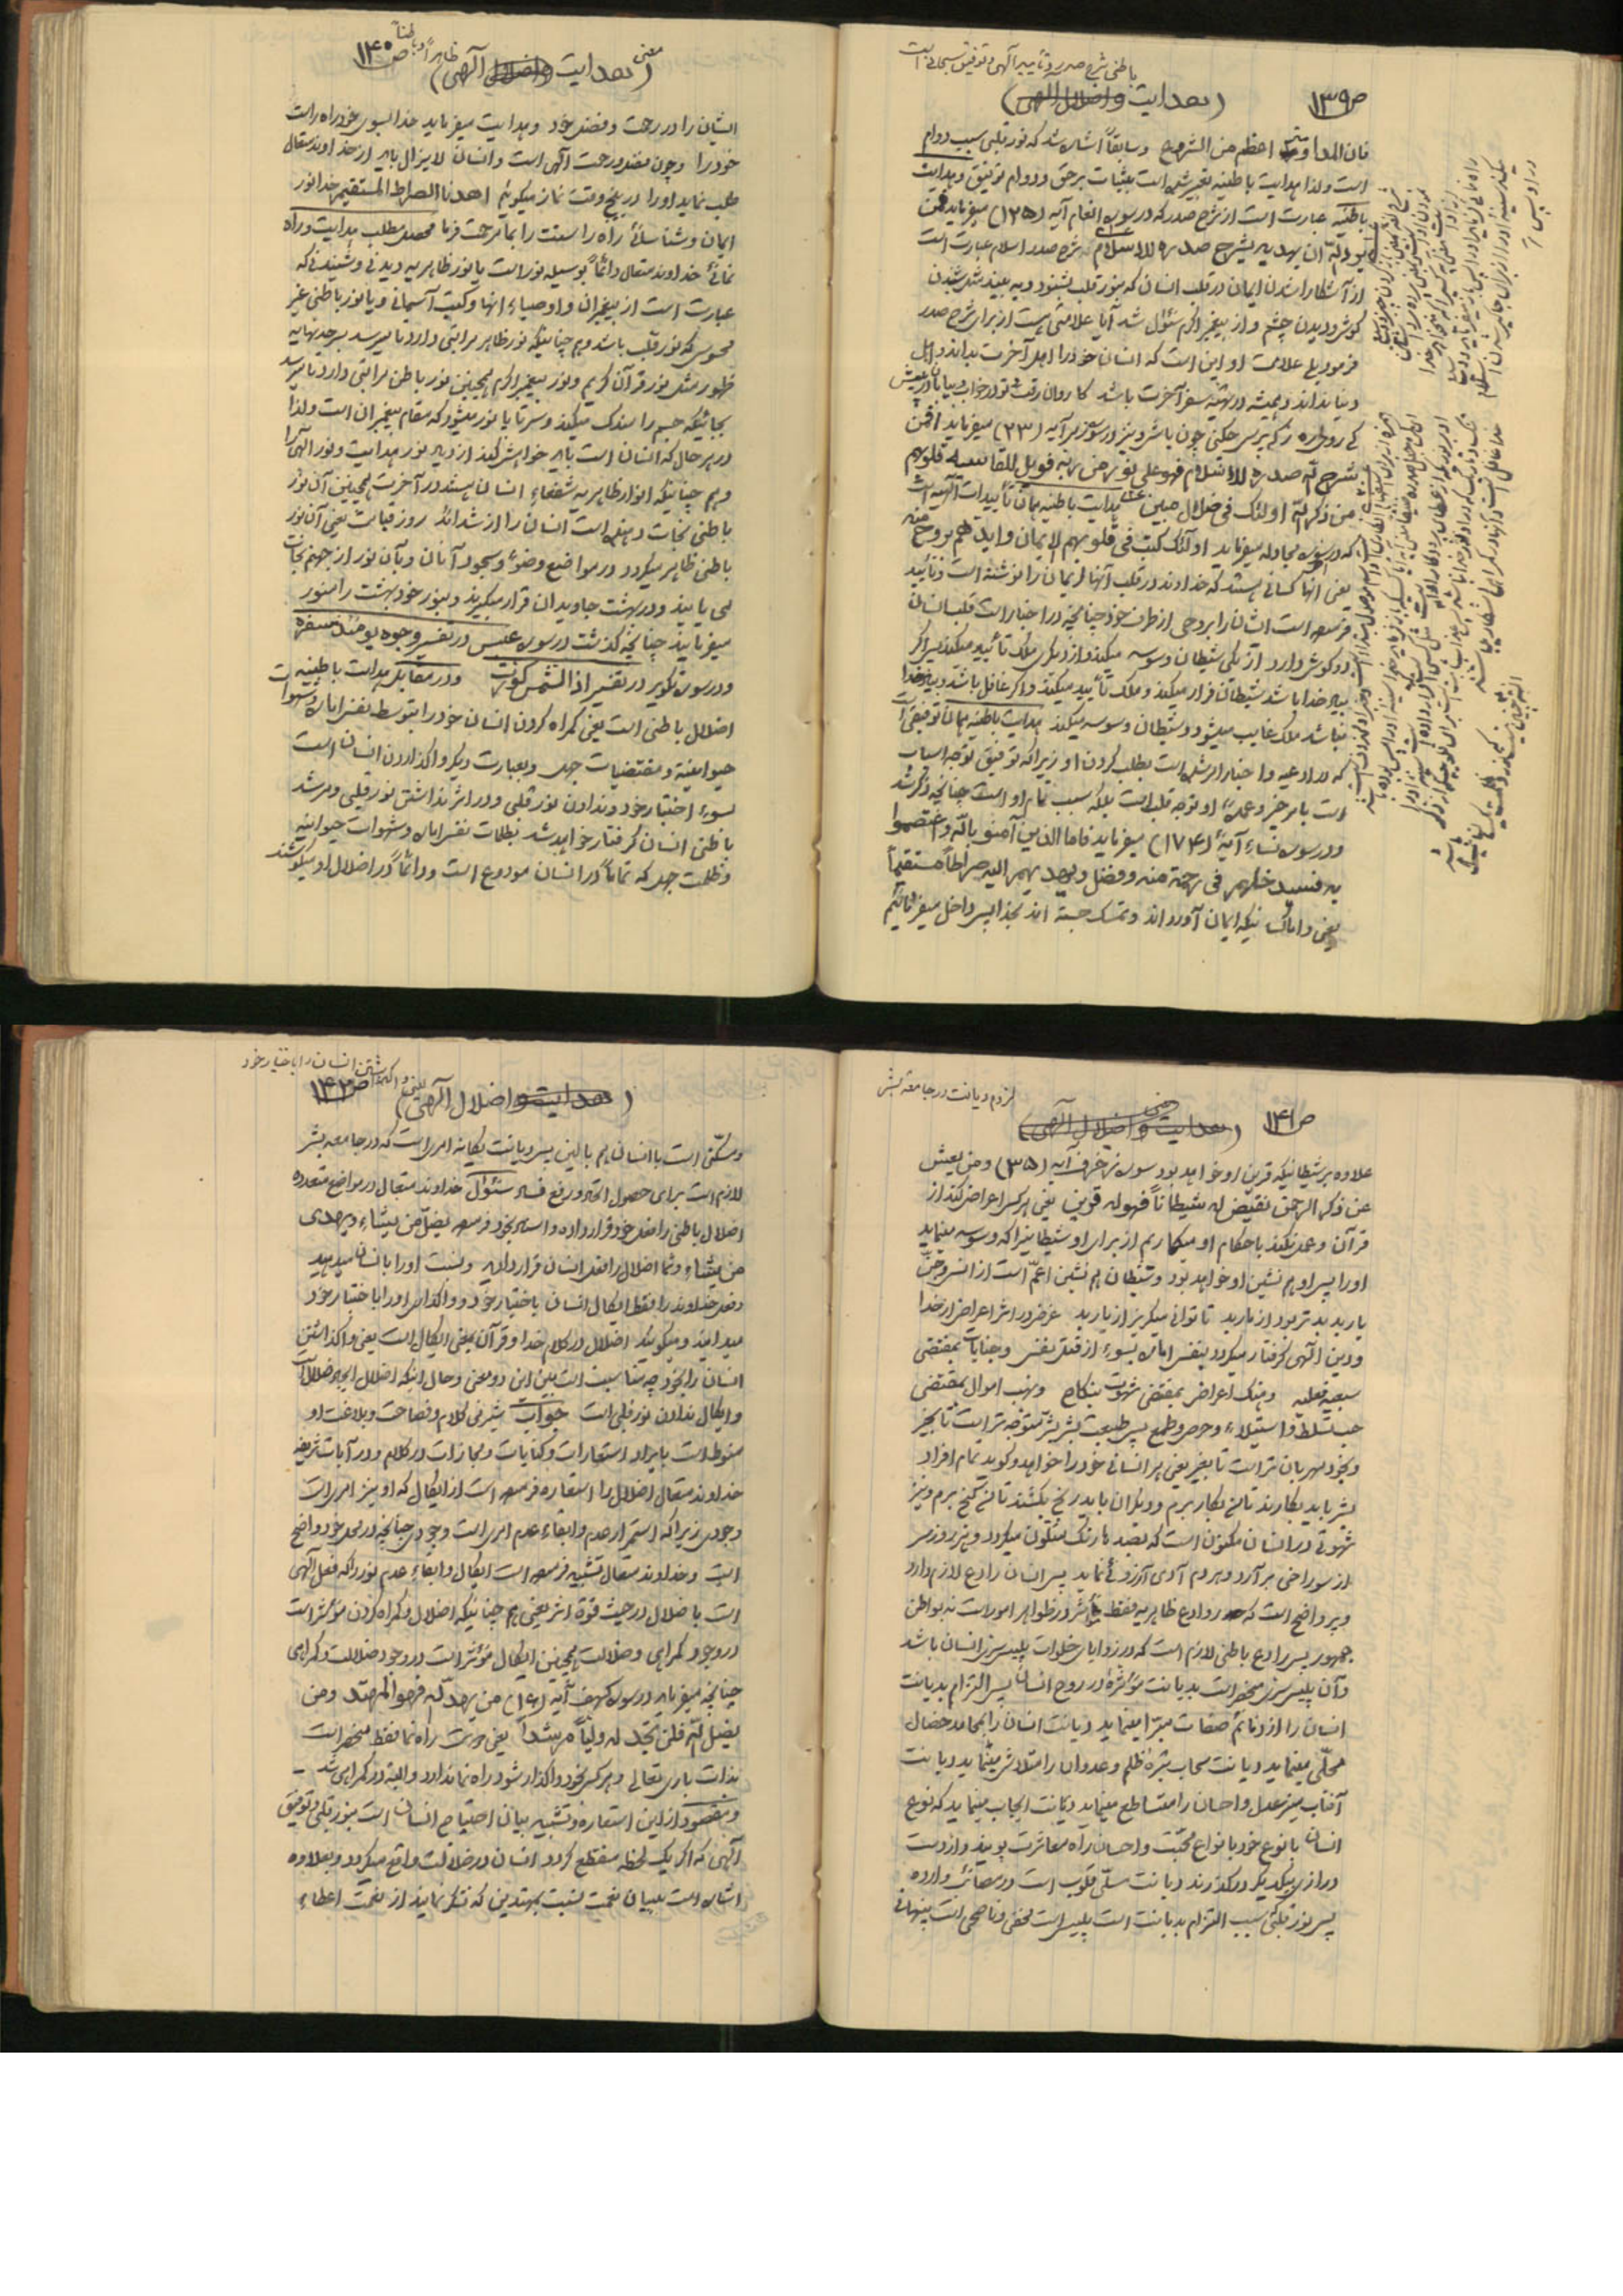 باطنی شرح صدر و تأیید آلهی و توفیق سبحانی است
ص۱۳۹ (هدایت واضلال الهی)
فان المداومة اعظم من الشروع وسابقاً اشاره شد که نور قلبی سبب دوام
است ولذا هدایت باطنیه تفسیر شده است بثبات بر حق ودوام توفیق وهدایت
باطنیه عبارت است از شرح صدر که در سوره انعام آیه (۱۲۵) میفرماید فمن
یرد الله ان یهدیه یشرح صدره للاسلام شرح صدر اسلام عبارت است
از آشکارا شدن ایمان در قلب انسان که بنور قلب بشنود و به بیند مثل شنیدن
گوش ودیدن چشم واز پیغمبر اکرم سئوال شد آیا علامتی هست از برای شرح صدر
فرمود بلی علامت او این است که انسان خود را اهل آخرت بداند و اهل
دنیا نداند وهمیشه در تهیه سفر آخرت باشد کاروان رفت و تو در خواب و بیابان در پیش
کی روی ره ز که پرسی چکنی چون باشی ونیز در سوره زمر آیه (۲۳) میفرماید افمن
شرح الله صدره للاسلام فهو علی نور من ربه فویل للقاسیه قلوبهم
من ذکر الله اولئک فی ضلال مبین هدایت باطنیه همان تأییدات آلهیه است
که در سوره مجادله میفرماید اولئک کتب فی قلوبهم الایمان وایدهم بروح منه
یعنی آنها کسانی هستند که خداوند در قلب آنها ایمان را نوشته است وتأیید
فرموده است ایشانرا بروحی از طرف خود چنانچه در اخبار است قلب انسان
دو گوش دارد از یکی شیطان وسوسه میکند واز دیگری ملک تأیید میکند پس اگر
بیاد خدا باشد شیطان فرار میکند وملک تأیید میکند واگر غافل باشد وبیاد خدا
نباشد ملک غایب میشود وشیطان وسوسه میکند هدایت باطنیه همان توفیق است
که در ادعیه واخبار امر شده است بطلب کردن او زیرا که توفیق توجه اسباب
است بامر خیر وعمده او توجه قلب است بلکه سبب تام او است چنانچه ذکر شد
ودر سوره نساء آیه (۱۷۴) میفرماید فاما الذین آمنو بالله واعتصموا
به فسیدخلهم فی رحمة منه وفضل ویهدیهم الیه صراطاً مستقیماً
یعنی واما کسانیکه ایمان آورده اند وتمسک جسته اند بخدا پس داخل میفرمائیم
معنی (هدایت واضلال آلهی) ظاهراً وباطناً ص۱۴۰
ایشان را در رحمت وفضل خود وهدایت میفرماید خدا بسوی خود راه راست
خود را وچون مقدور رحمت آلهی است وانسان لایزال باید از خداوند متعال
طلب نماید او را در پنج وقت نماز میگوئیم اهدنا الصراط المستقیم خدا نور
ایمان وشناسائی راه راست را بما مرحمت فرما محصل مطلب هدایت وراه
نمائی خداوند متعال دائماً بوسیله نور است یا نور ظاهریه دیدنی وشنیدنی که
عبارت است از پیغمبران واوصیاء آنها وکتب آسمانی ویا نور باطنی غیر
محسوس که نور قلب باشد وهم چنانیکه نور ظاهر مراتبی دارد تا میرسد بسر حد نهایه
ظهور مثل نور قرآن کریم ونور پیغمبر اکرم همچنین نور باطن مراتبی دارد تا میرسد
بجائیکه جسم را مندک میکند وسر تا پا نور میشود که مقام پیغمبران است ولذا
در هر حال که انسان است باید خواهش کند ازدیاد نور هدایت ونور آلهی را
وهم چنانیکه انوار ظاهریه شفعاء انسان هستند در آخرت همچنین آن نور
باطنی نجات دهنده است انسان را از شدائد روز قیامت یعنی آن نور
باطنی ظاهر میگردد در مواضع وضوء وسجود آنان وبآن نور از جهنم نجات
می یابند ودر بهشت جاویدان قرار میگیرند وبنور خود بهشت را منور
میفرمایند چنانچه گذشت در سوره عبس در تفسیر وجوه یومئذ مسفره
ودر سوره تکویر در تفسیر اذا الشمس کورت ودر مقابل هدایت باطنیه
اضلال باطنی است یعنی گمراه کردن انسان خود را بتوسط نفس اماره وشهوات
حیوانیه ومقتضیات جهل وبعبارت دیگر واگذاردن انسان است
بسوء اختیار خود وندادن نور قلبی ودر اثر نداشتن نور قلبی ومرشد
باطنی انسان گرفتار خواهد شد بظلمات نفس اماره وشهوات حیوانیه
وظلمت جهل که تماماً در انسان مودوع است ودائماً در اضلال او میکوشند
لزوم دیانت در جامعه بشر
ص۱۴۱ (هدایت واضلال آلهی)
علاوه بر شیطانیکه قرین او خواهد بود سوره زخرف آیه (۳۵) ومن یعش
عن ذکر الرحمن نقیض له شیطاناً فهو له قرین یعنی هر کس اعراض کند از
قرآن وعمل نکند باحکام او میگماریم از برای او شیطانیرا که وسوسه مینماید
او را پس او هم نشین او خواهد بود وشیطان هم نشین اعمّ است از انس وجن
یار بد بدتر بود از مار بد تا توانی میگریز از یار بد غرض در اثر اعراض از خدا
ودین آلهی گرفتار میگردد بنفس اماره بسوء از قتل نفس وجنایات بمقتضی
سبعیه فعلیه وهتک اعراض بمقتضی شهوت بنکاح ونهب اموال بمقتضی
حب تسلط واستیلاء وحرص وطمع پس طبیعت بشر بشرّ متوجه تر است تا بخیر
وبخود مهربان تر است تا بغیر یعنی هر انسانی خود را خواهد وگوید تمام افراد
بشر باید بکارند تا من بکار برم ودیگران باید رنج بکشند تا من گنج برم ونیز
شهوتی در انسان مکنون است که بصد ها رنگ متلون میگردد وهر روز سر
از سوراخی بر آرد وهر دم آدمی آرزوئی نماید پس انسان رادع لازم دارد
وپر واضح است که روادع ظاهریه فقط مؤثر در ظواهر امور است نه بواطن
جمهور پس رادع باطنی لازم است که در زوایای خلوات پلیس سرّ انسان باشد
وآن پلیس سرّی منحصر است بدیانت مؤثره در روح انسان پس التزام بدیانت
انسان را از ذمائم صفات مبرّا مینماید دیانت انسان را بمحامد خصال
محلّی مینماید دیانت سحاب تیره ظلم وعدوان را متلاشی مینماید دیانت
آفتاب منیر عدل واحسان را متساطع مینماید دیانت ایجاب مینماید که نوع
انسان با نوع خود بانواع محبت واحسان راه معاشرت پویند واز دست
درازی بیکدیگر درگذرند دیانت مسلّی قلوب است در مصائب وارده
پس نور قلبی سبب التزام بدیانت است پلیس است مخفی وناصحی است پنهانی
(هدایت واضلال آلهی) یعنی واگذاشتن انسان را باختیار خود ص۱۴۲
ومسکن است با انسان هم بالین پس دیانت یگانه امری است که در جامعه بشر
لازم است برای حصول اتحاد ورفع فساد سئوال خداوند متعال در مواضع متعدده
اضلال باطنی را فعل خود قرار داده واسناد بخود فرموده یضل من یشاء ویهدی
من یشاء وشما اضلال را فعل انسان قرار داده اید ونسبت او را بانسان میدهید
وفعل خداوند را فقط ایکال انسان باختیار خود وواگذاری او را باختیار خود
میدانید ومیگوئید اضلال در کلام خدا وقرآن بمعنی ایکال است یعنی واگذاشتن
انسان را بخود چه مناسبت است بین این دو معنی وحال اینکه اضلال ایجاد ضلالت
وایکال ندادن نور قلبی است جواب شیرینی کلام وفصاحت وبلاغت او
منوط است بایراد استعارات وکنایات ومجازات در کلام ودر آیات شریفه
خداوند متعال اضلال را استعاره فرموده است از ایکال که او نیز امری است
وجودی زیرا که استمرار عدم وابقاء عدم امری است وجودی چنانچه در محل خود واضح
است وخداوند متعال تشبیه فرموده است ایکال وابقاء عدم نور را که فعل آلهی
است باضلال در حیث قوة اثر یعنی هم چنانیکه اضلال وگمراه کردن مؤثر است
در وجود گمراهی وضلالت همچنین ایکال مؤثر است در وجود ضلالت وگمراهی
چنانچه میفرماید در سوره کهف آیه (۱۶) من یهد الله فهو المهتد ومن
یضلل الله فلن تجد له ولیاً مرشداً یعنی دوست راه نما فقط منحصر است
بذات باری تعالی وهر کس بخود واگذار شود راه نما ندارد والبته در گمراهی شد
ومقصود از این استعاره وتشبیه بیان احتیاج انسان است بنور قلبی وتوفیق
آلهی که اگر یک لحظه منقطع گردد انسان در ضلالت واقع میگردد وبعلاوه
اشاره است ببیان نعمت نسبت بمهتدین که تشکر نمایند از نعمت اعطاء